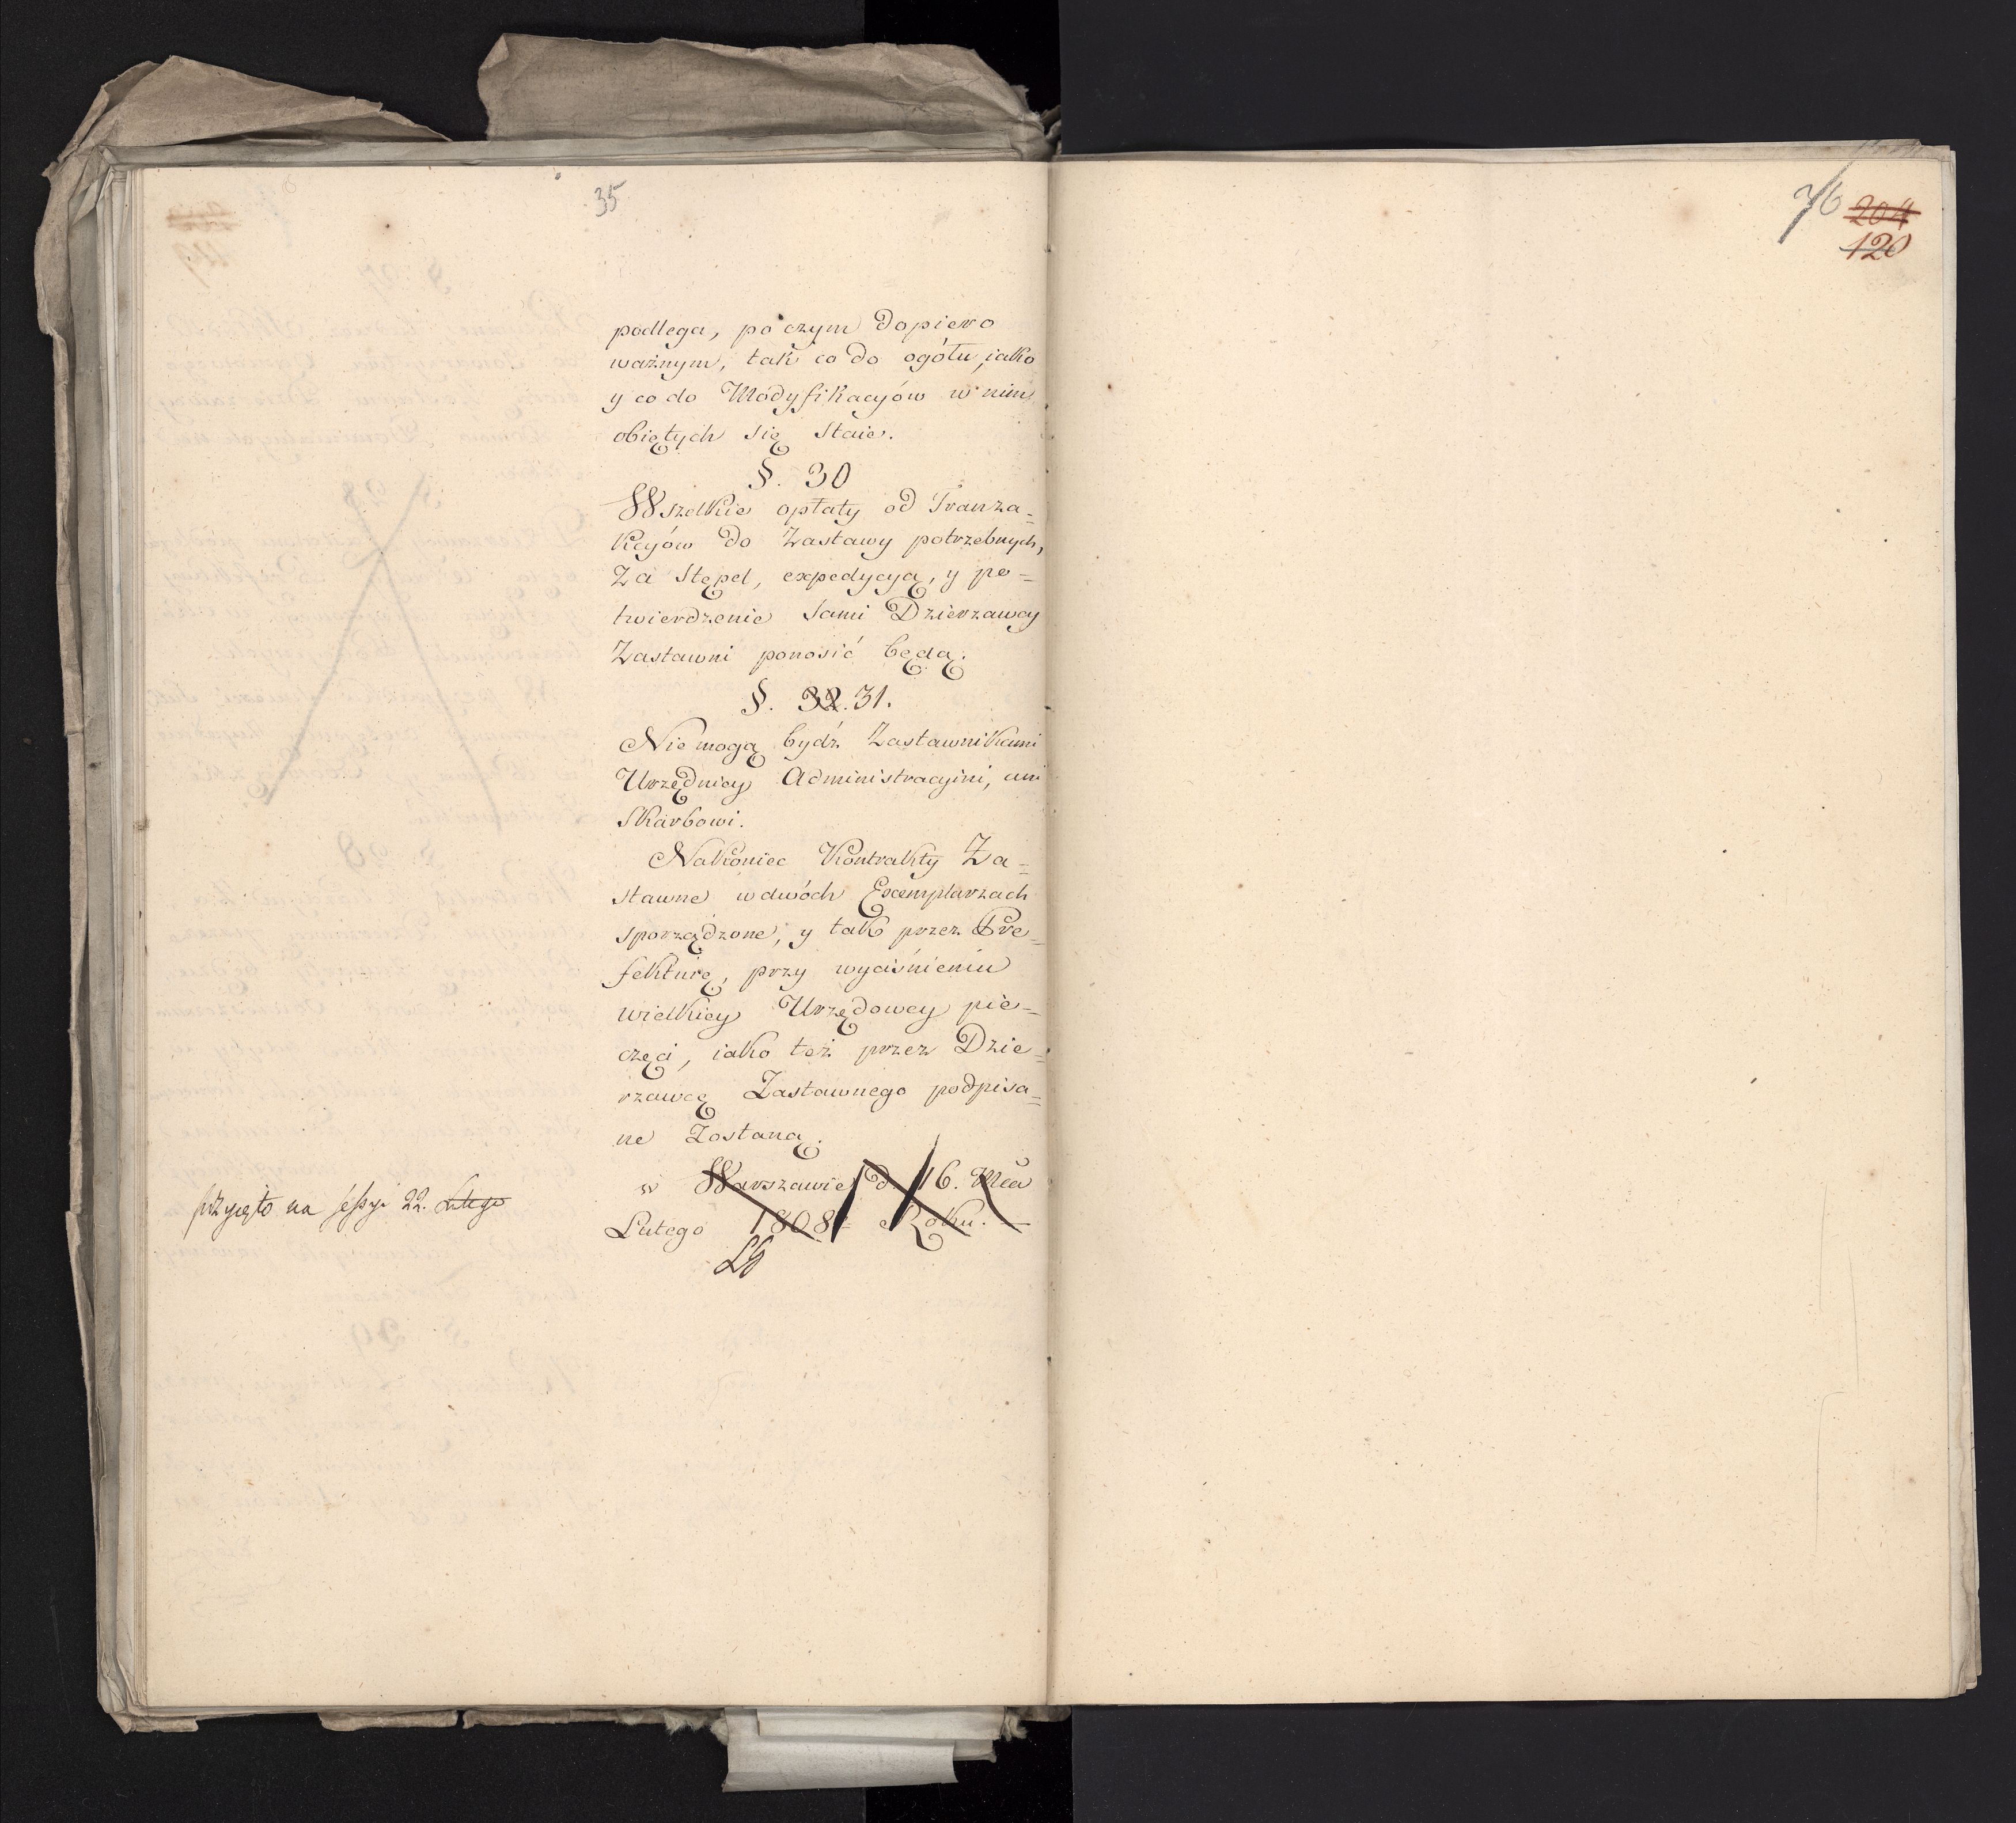 35
podlega, po czym dopiero
ważnym, tak co do ogółu, iako
y co do Modyfikacyów w nim
obiętych się staie.
§. 30
Wszelkie opłaty od Tranza=
kcyów do Zastawy potrzebnych,
za Stępel, expedycyą, y po=
twierdzenie sami Dzierzawcy
Zastawni ponosić będą.
§. 32. 31.
Nie mogą bydź Zastawnikami
Urzędnicy Administracyini, ani
Skarbowi.
Nakoniec Kontrakty Za=
stawne w dwóch Exemplarzach
sporządzone, y tak przez Pre=
fekturę, przy wyciśnieniu
wielkiey Urzędowey pie=
częci, iako też przez Dzie=
rzawcę Zastawnego podpisa=
ne Zostaną.
w Warszawie d. 16. Mca
Lutego 1808 Roku.
przyięto na sessyi 22. Lutego
76
204
120